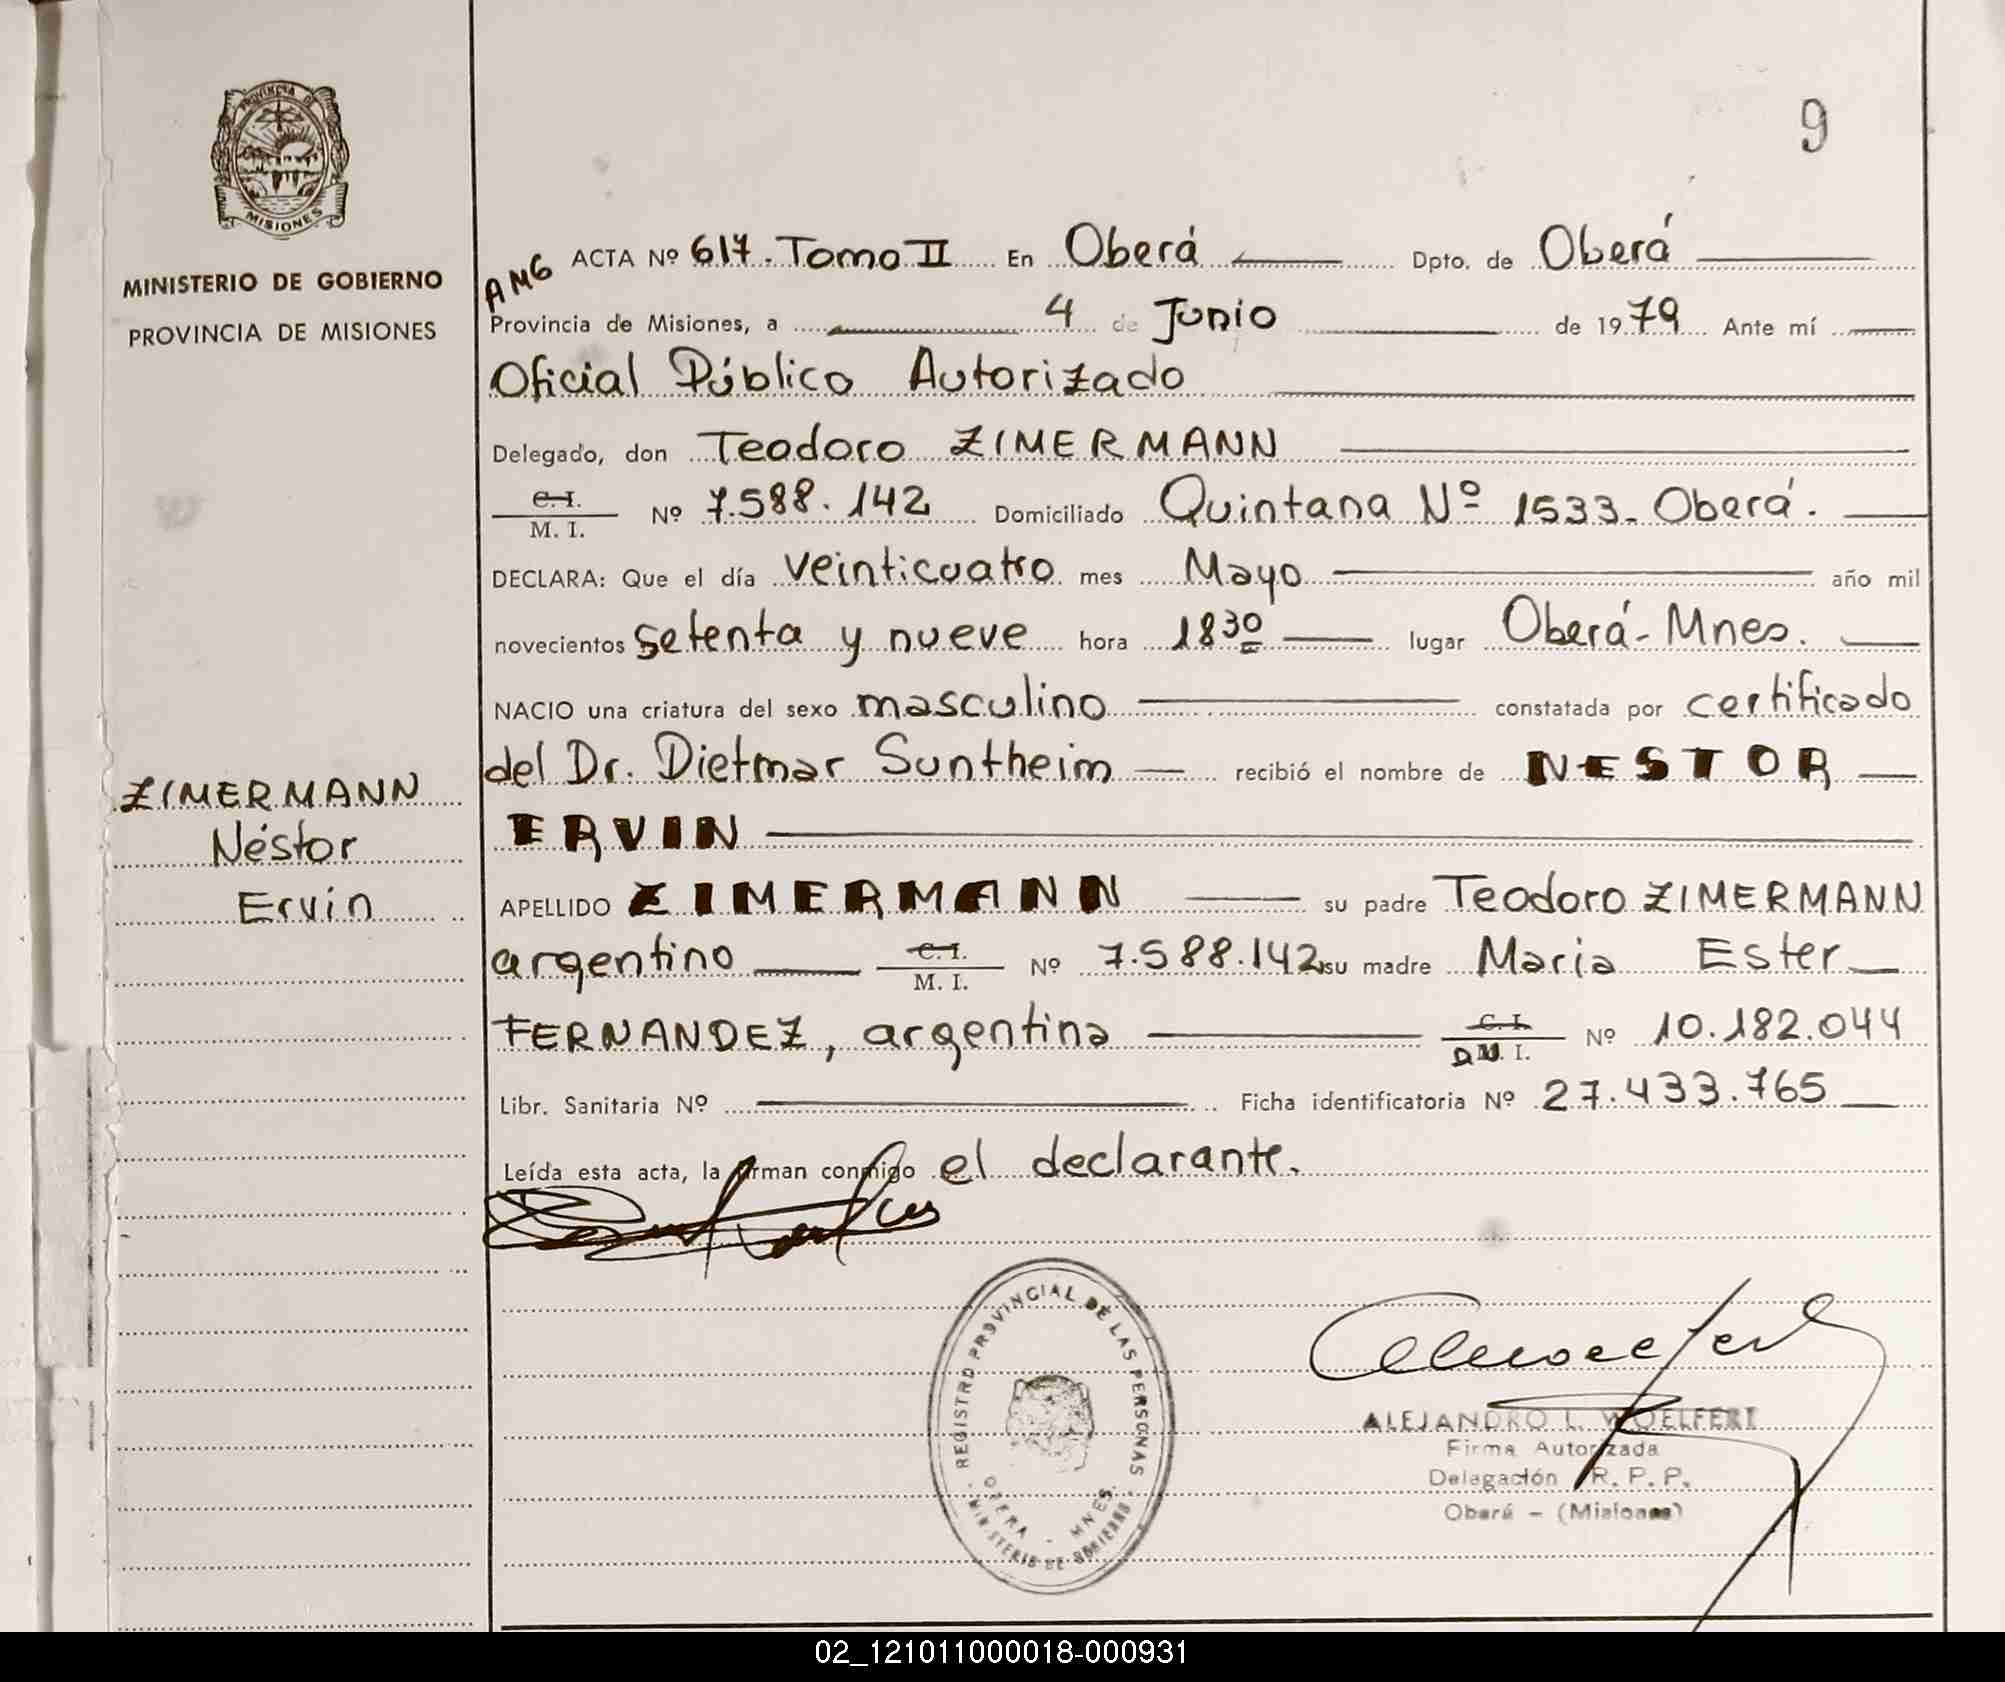 PROVINCIA DE
MISIONES
MINISTERIO DE GOBIERNO
PROVINCIA DE MISIONES
ZIMERMANN
Néstor
Ervin
9
AMG
ACTA Nº 617. Tomo II En Oberá Dpto. de Oberá
Provincia de Misiones, a 4 de Junio de 1979 Ante mí
Oficial Público Autorizado
Delegado, don Teodoro ZIMERMANN
C. I.
M. I. Nº 7.588.142 Domiciliado Quintana Nº 1533. Oberá.
DECLARA: Que el día veinticuatro mes Mayo año mil
novecientos setenta y nueve hora 18 30 lugar Oberá - Mnes.
NACIO una criatura del sexo masculino constatada por certificado
del Dr. Dietmar Suntheim recibió el nombre de NESTOR
ERVIN
APELLIDO ZIMERMANN su padre Teodoro ZIMERMANN
argentino C. I.
M. I. Nº 7.588.142 su madre Maria Ester
FERNANDEZ, argentina C. I.
M. I. Nº 10.182.044
Libr. Sanitaria Nº Ficha identificatoria Nº 27.433.765
Leída esta acta, la firman conmigo el declarante.
REGISTRO PROVINCIAL DE LAS PERSONAS
OBERA - MNES.
MINISTERIO DE GOBIERNO
ALEJANDRO L. WOELFERT
Firma Autorizada
Delegación R. P. P.
Oberá - (Misiones)
02_121011000018-000931